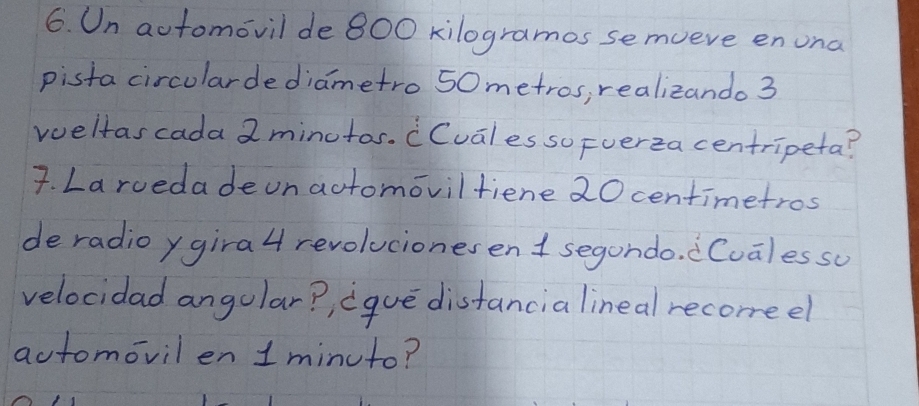 6. Un automóvil de 800 kilogramos se mueve en una
pista circular de diámetro 50 metros, realizando 3
vueltas cada 2 minutos. ¿Cuál es su fuerza centrípeta?
7. La rueda de un automóvil tiene 20 centímetros
de radio y gira 4 revoluciones en 1 segundo. ¿Cuál es su
velocidad angular?, ¿qué distancia lineal recorre el
automóvil en 1 minuto?